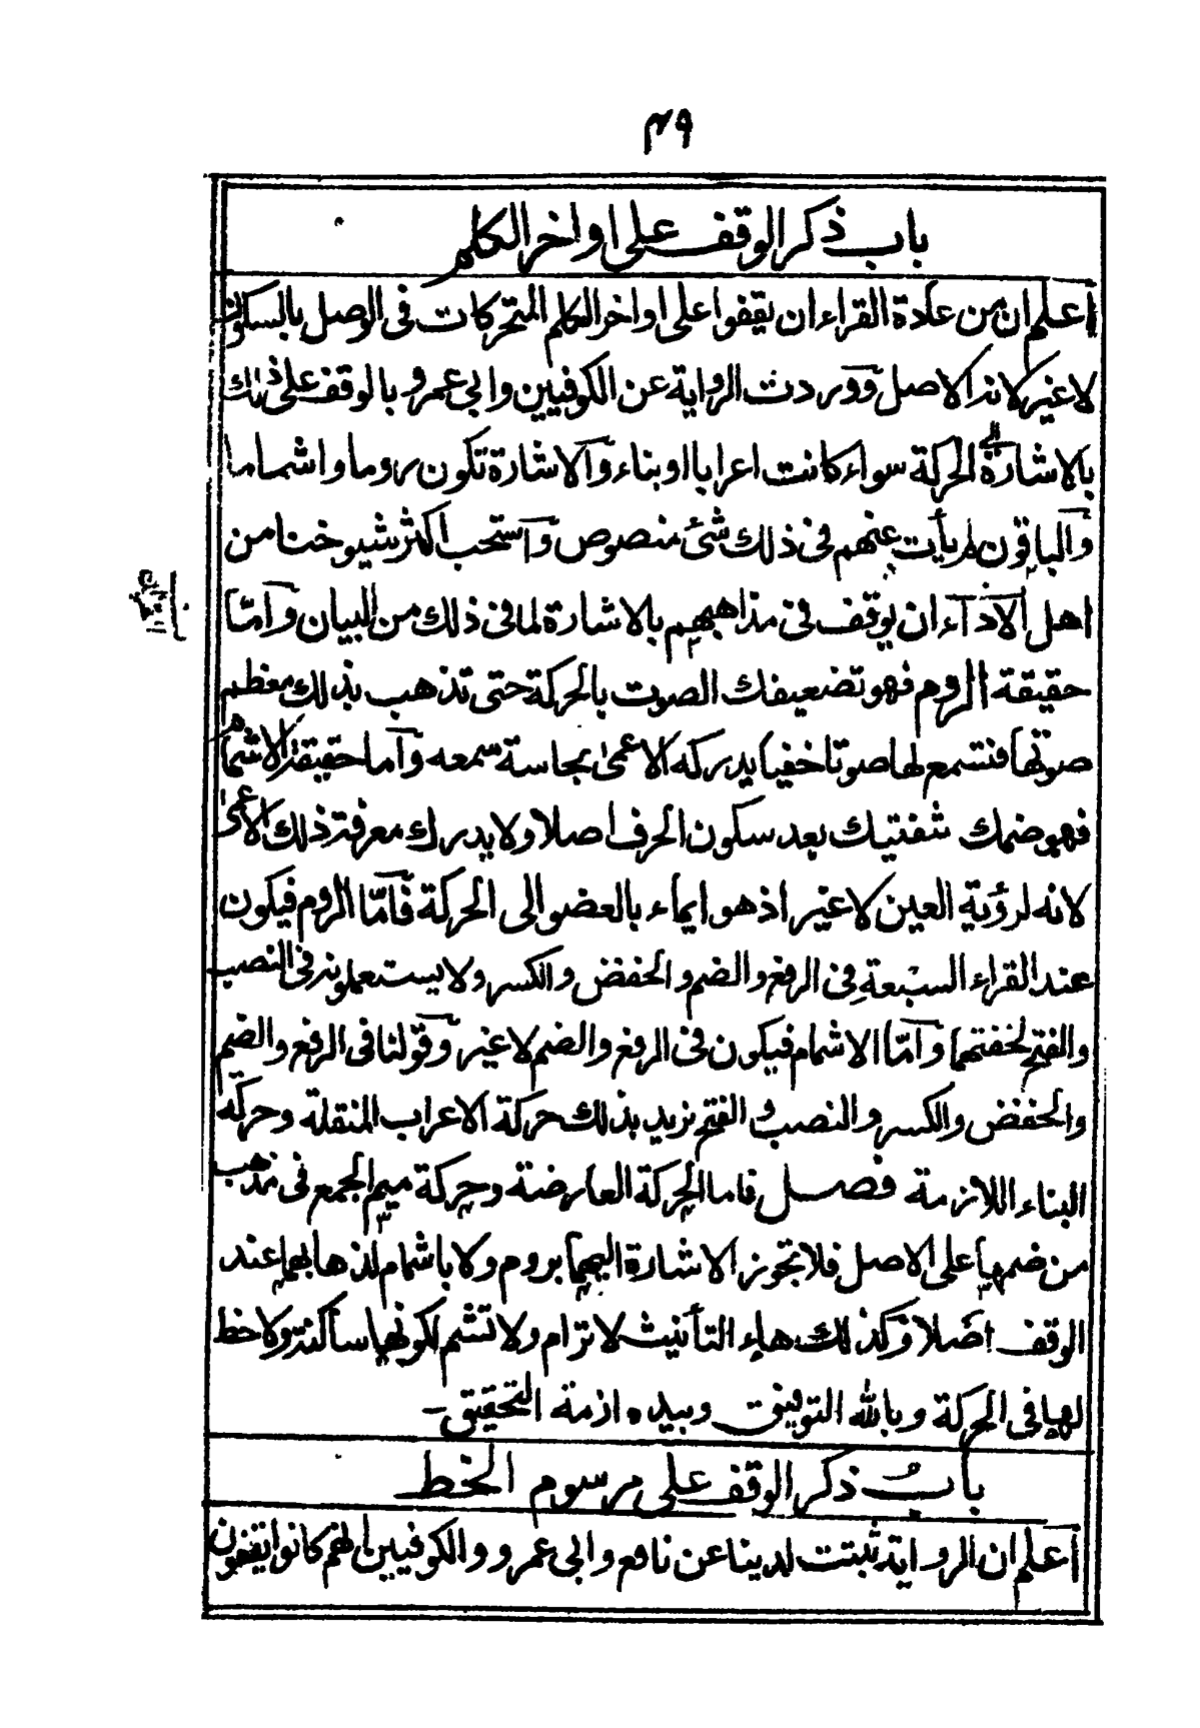 ٤٩
باب ذكر الوقف على اواخر الكلم
اعلم ان من عادة القراء ان يقفوا على اواخر الكلم المتحركات فى الوصل بالسكون
لا غير لانه الاصل ووردت الرواية عن الكوفيين وابى عمرو بالوقف على ذلك
بالاشارة الى الحركة سواء كانت اعرابا او بناء والاشارة تكون روما واشماما
والباقون لم يأت عنهم فى ذلك شئ منصوص واستحب اكثر شيوخنا من
اهل الاداء ان يوقف فى مذاهبهم بالاشارة لما فى ذلك من البيان وامّا
حقيقة الروم فهو تضعيفك الصوت بالحركة حتى تذهب بذلك معظم
صوتها فتسمع لها صوتا خفيا يدركه الاعمى بحاسة سمعه واما حقيقة الاشمام
فهو ضمك شفتيك بعد سكون الحرف اصلا ولا يدرك معرفة ذلك الاعمى
لانه لرؤية العين لا غير اذ هو ايماء بالعضو الى الحركة فامّا الروم فيكون
عند القراء السبعة فى الرفع والضم والخفض والكسر ولا يستعملونه فى النصب
والفتح لخفتهما وامّا الاشمام فيكون فى الرفع والضم لا غير وقولنا فى الرفع والضم
والخفض والكسر والنصب والفتح نريد بذلك حركة الاعراب المنتقلة وحركة
البناء اللازمة فصل فاما الحركة العارضة وحركة ميم الجمع فى مذهب
من ضمها على الاصل فلا تجوز الاشارة اليهما بروم ولا باشمام لذهابهما عند
الوقف اصلا وكذلك هاء التأنيث لا ترام ولا تشم لكونها ساكنة ولا حظ
لها فى الحركة وبالله التوفيق وبيده ازمة التحقيق-
باب ذكر الوقف على مرسوم الخط
اعلم ان الرواية ثبتت لدينا عن نافع وابى عمرو والكوفيين انهم كانوا يقفون